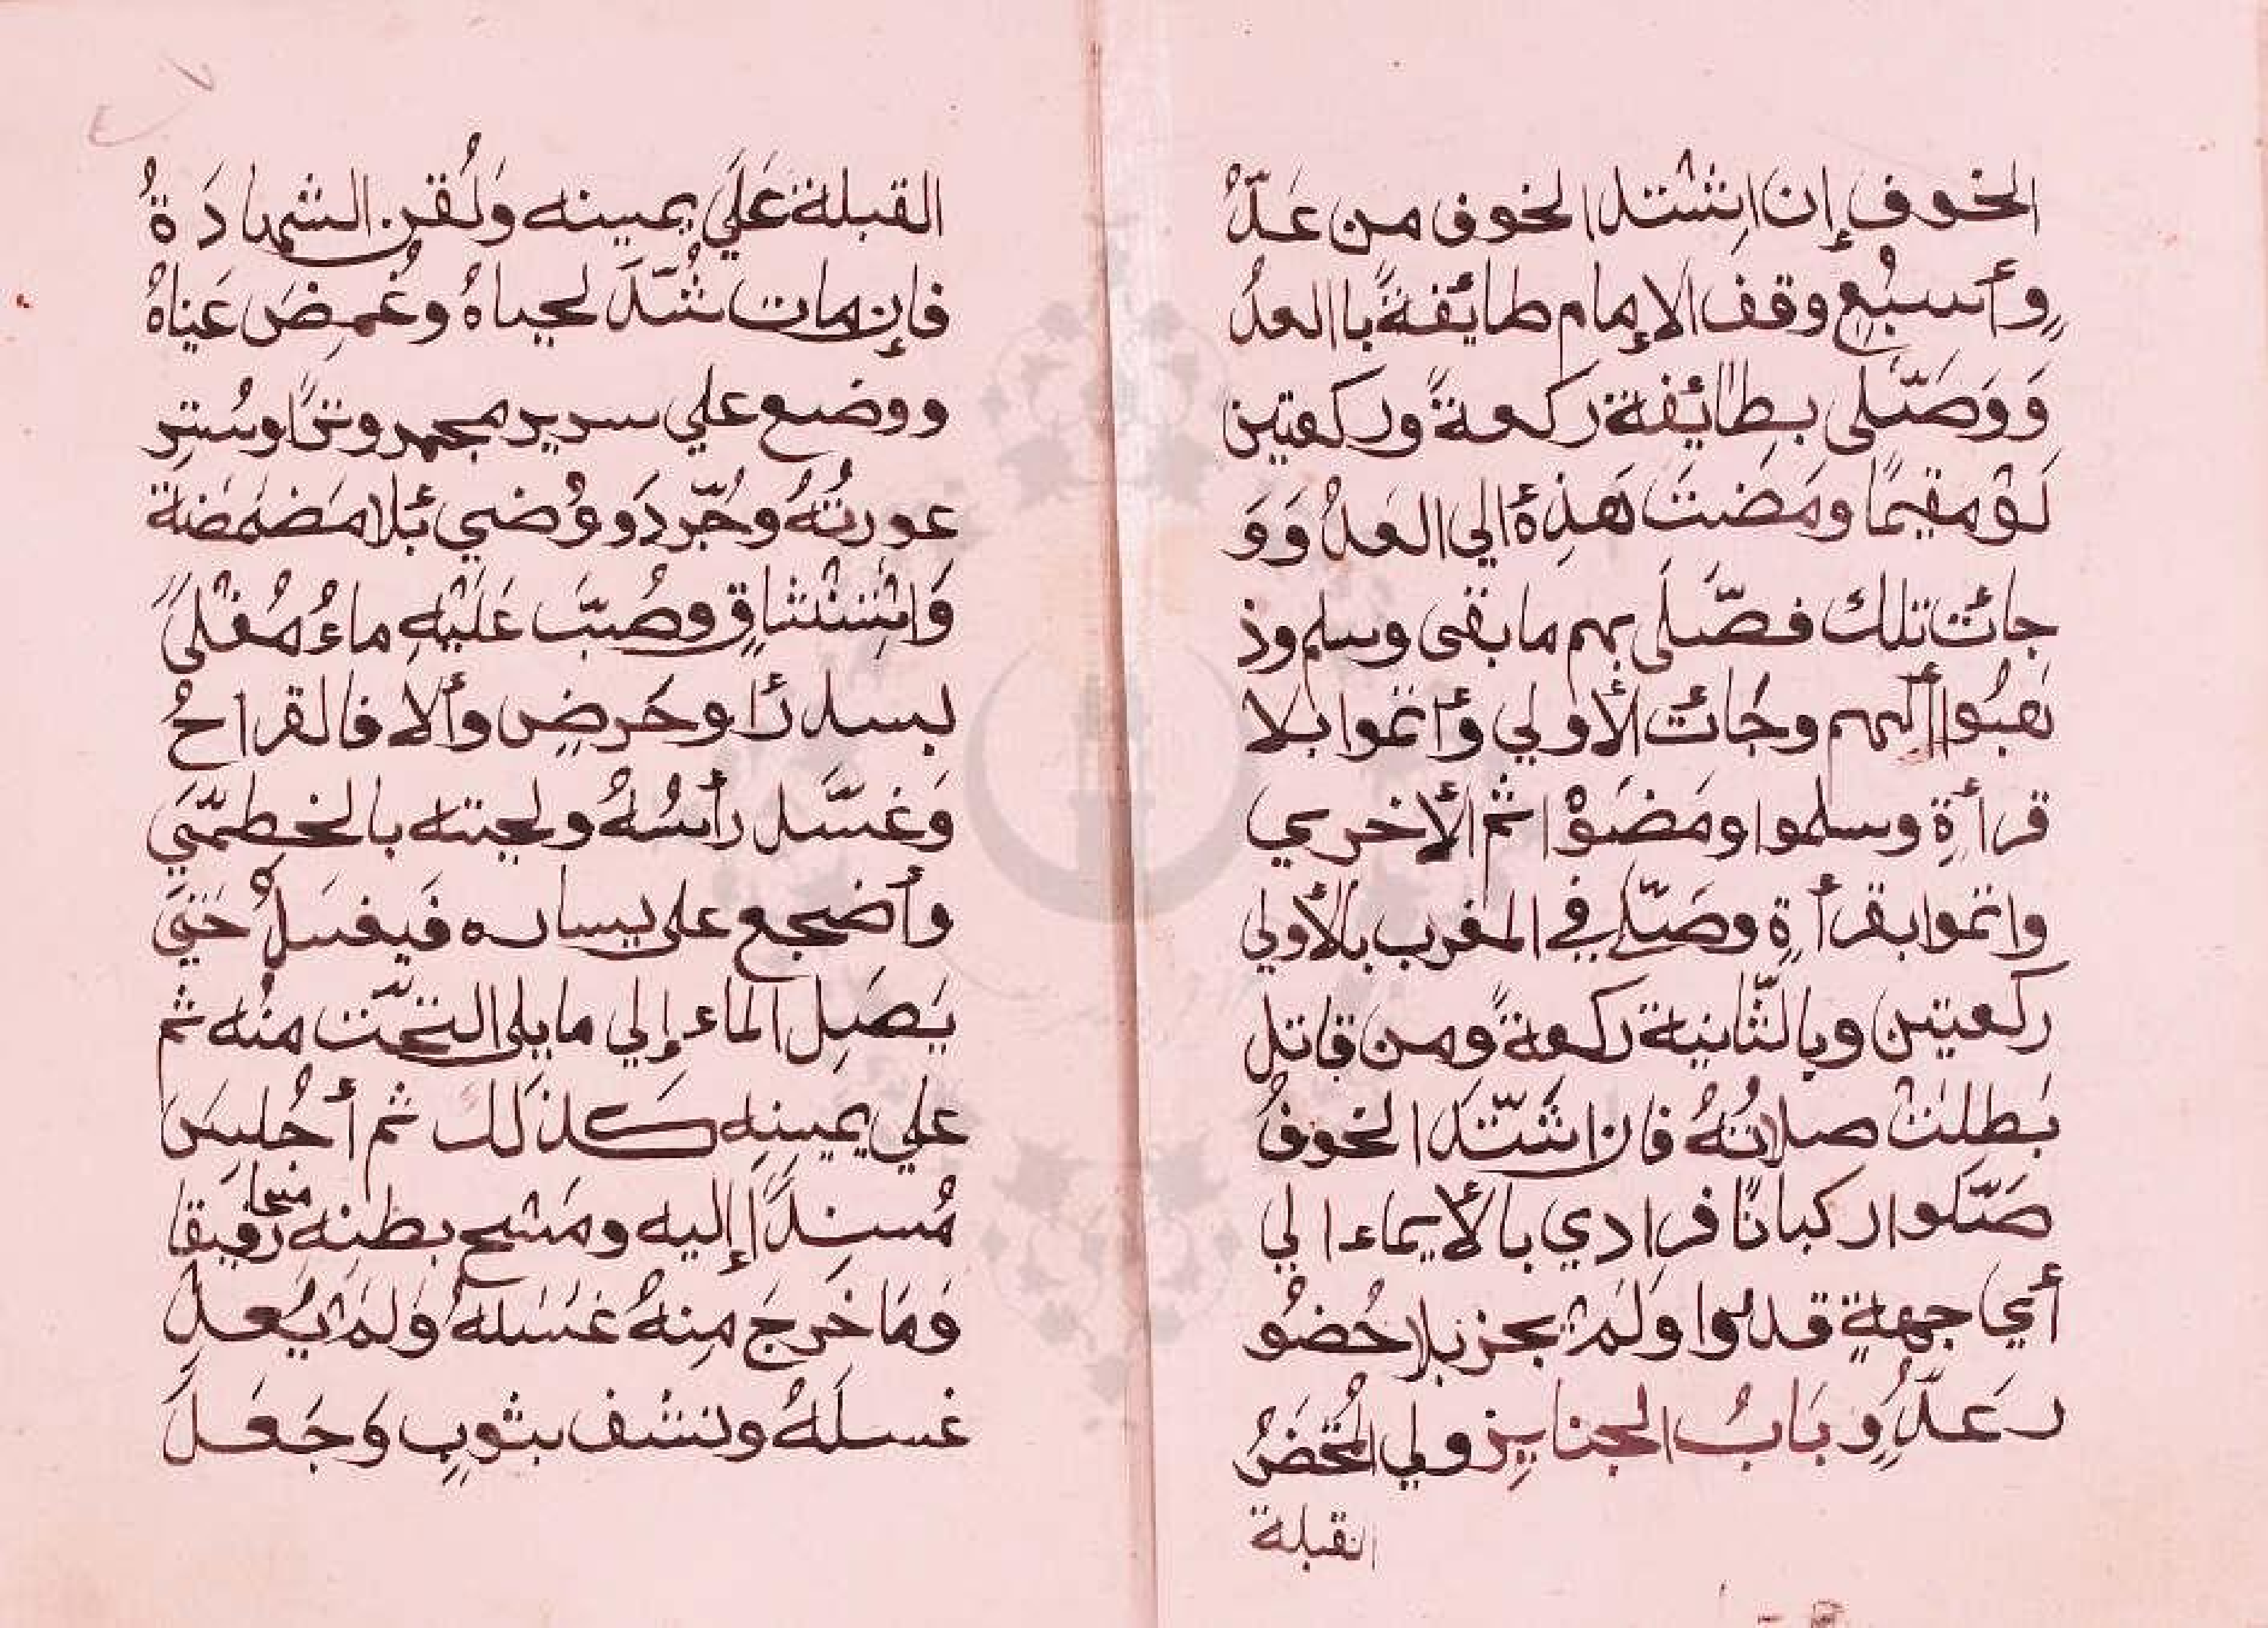 الخوف إن اِشْتد الخوف من عَدُ
وٍ وأسبُعٍ وقف الإمام طائفةً باالعدُ
وَ وَصَلّى بِطائِفة ركعةً وركعتين
لَوْ مقيمًا ومَضتَ هَذِهٔ الي العَدُ وَوَ
جائت تلك فصَّلَى بهم ما بقى وسلم وذ
هَبُوا أليهم وجَائت الأولي وأتموا بلا
قرأةِ وسلموا ومَضَوْا ثم الأخري
واتموا بقرأةٍ وصَلّي في المغرب بالأولي
ركعتين وبالثّانية ركعةً ومن قاتل
بَطِلتْ صلاتُهُ فان اشَتّدَ الخوفُ
صَلّوا ركبانًا فرادي بالأيماء الي
أي جهةٍ قدروا وَلَمْ يجز بلا حُضُو
ر عَدُوٍ بَابُ الجنايِز ولي المُحْتضَرُ
القبلة
القبلة عَلَي يمينه وَلُقن الشهادَةُ
فإن مات شُدَّ لحياهُ وغُمِضَ عَيناهُ
ووضع علي سرير مجمر وترًا وسُتِر
عورتُهُ وجُرّدَ ووُضي بَلا مَضمَضة
وَاِسْتنْشاقٍ وصُبَّ عَلَيْهِ ماءُ مُغْلىً
بسدرٔ أو حَرضٍ وألا فالقراحُ
وَغسَّل رأسُهُ ولحيته بالخطمّي
وأضجع على يساره فَيغسَلُ حَتي
يَصَلِ الماء إلي ما يلى التّحَت منه ثم
علي يمينِه كذلك ثم أجُلِسَ
مُسنِدًا إليه ومَسْح بطنِه مسحا رَفيقا
وَمَا خَرجَ مِنهُ غسَلهُ وَلَمْ يُعدْ
غسلَهُ ونشف بثوبٍ وَجَعَلَ